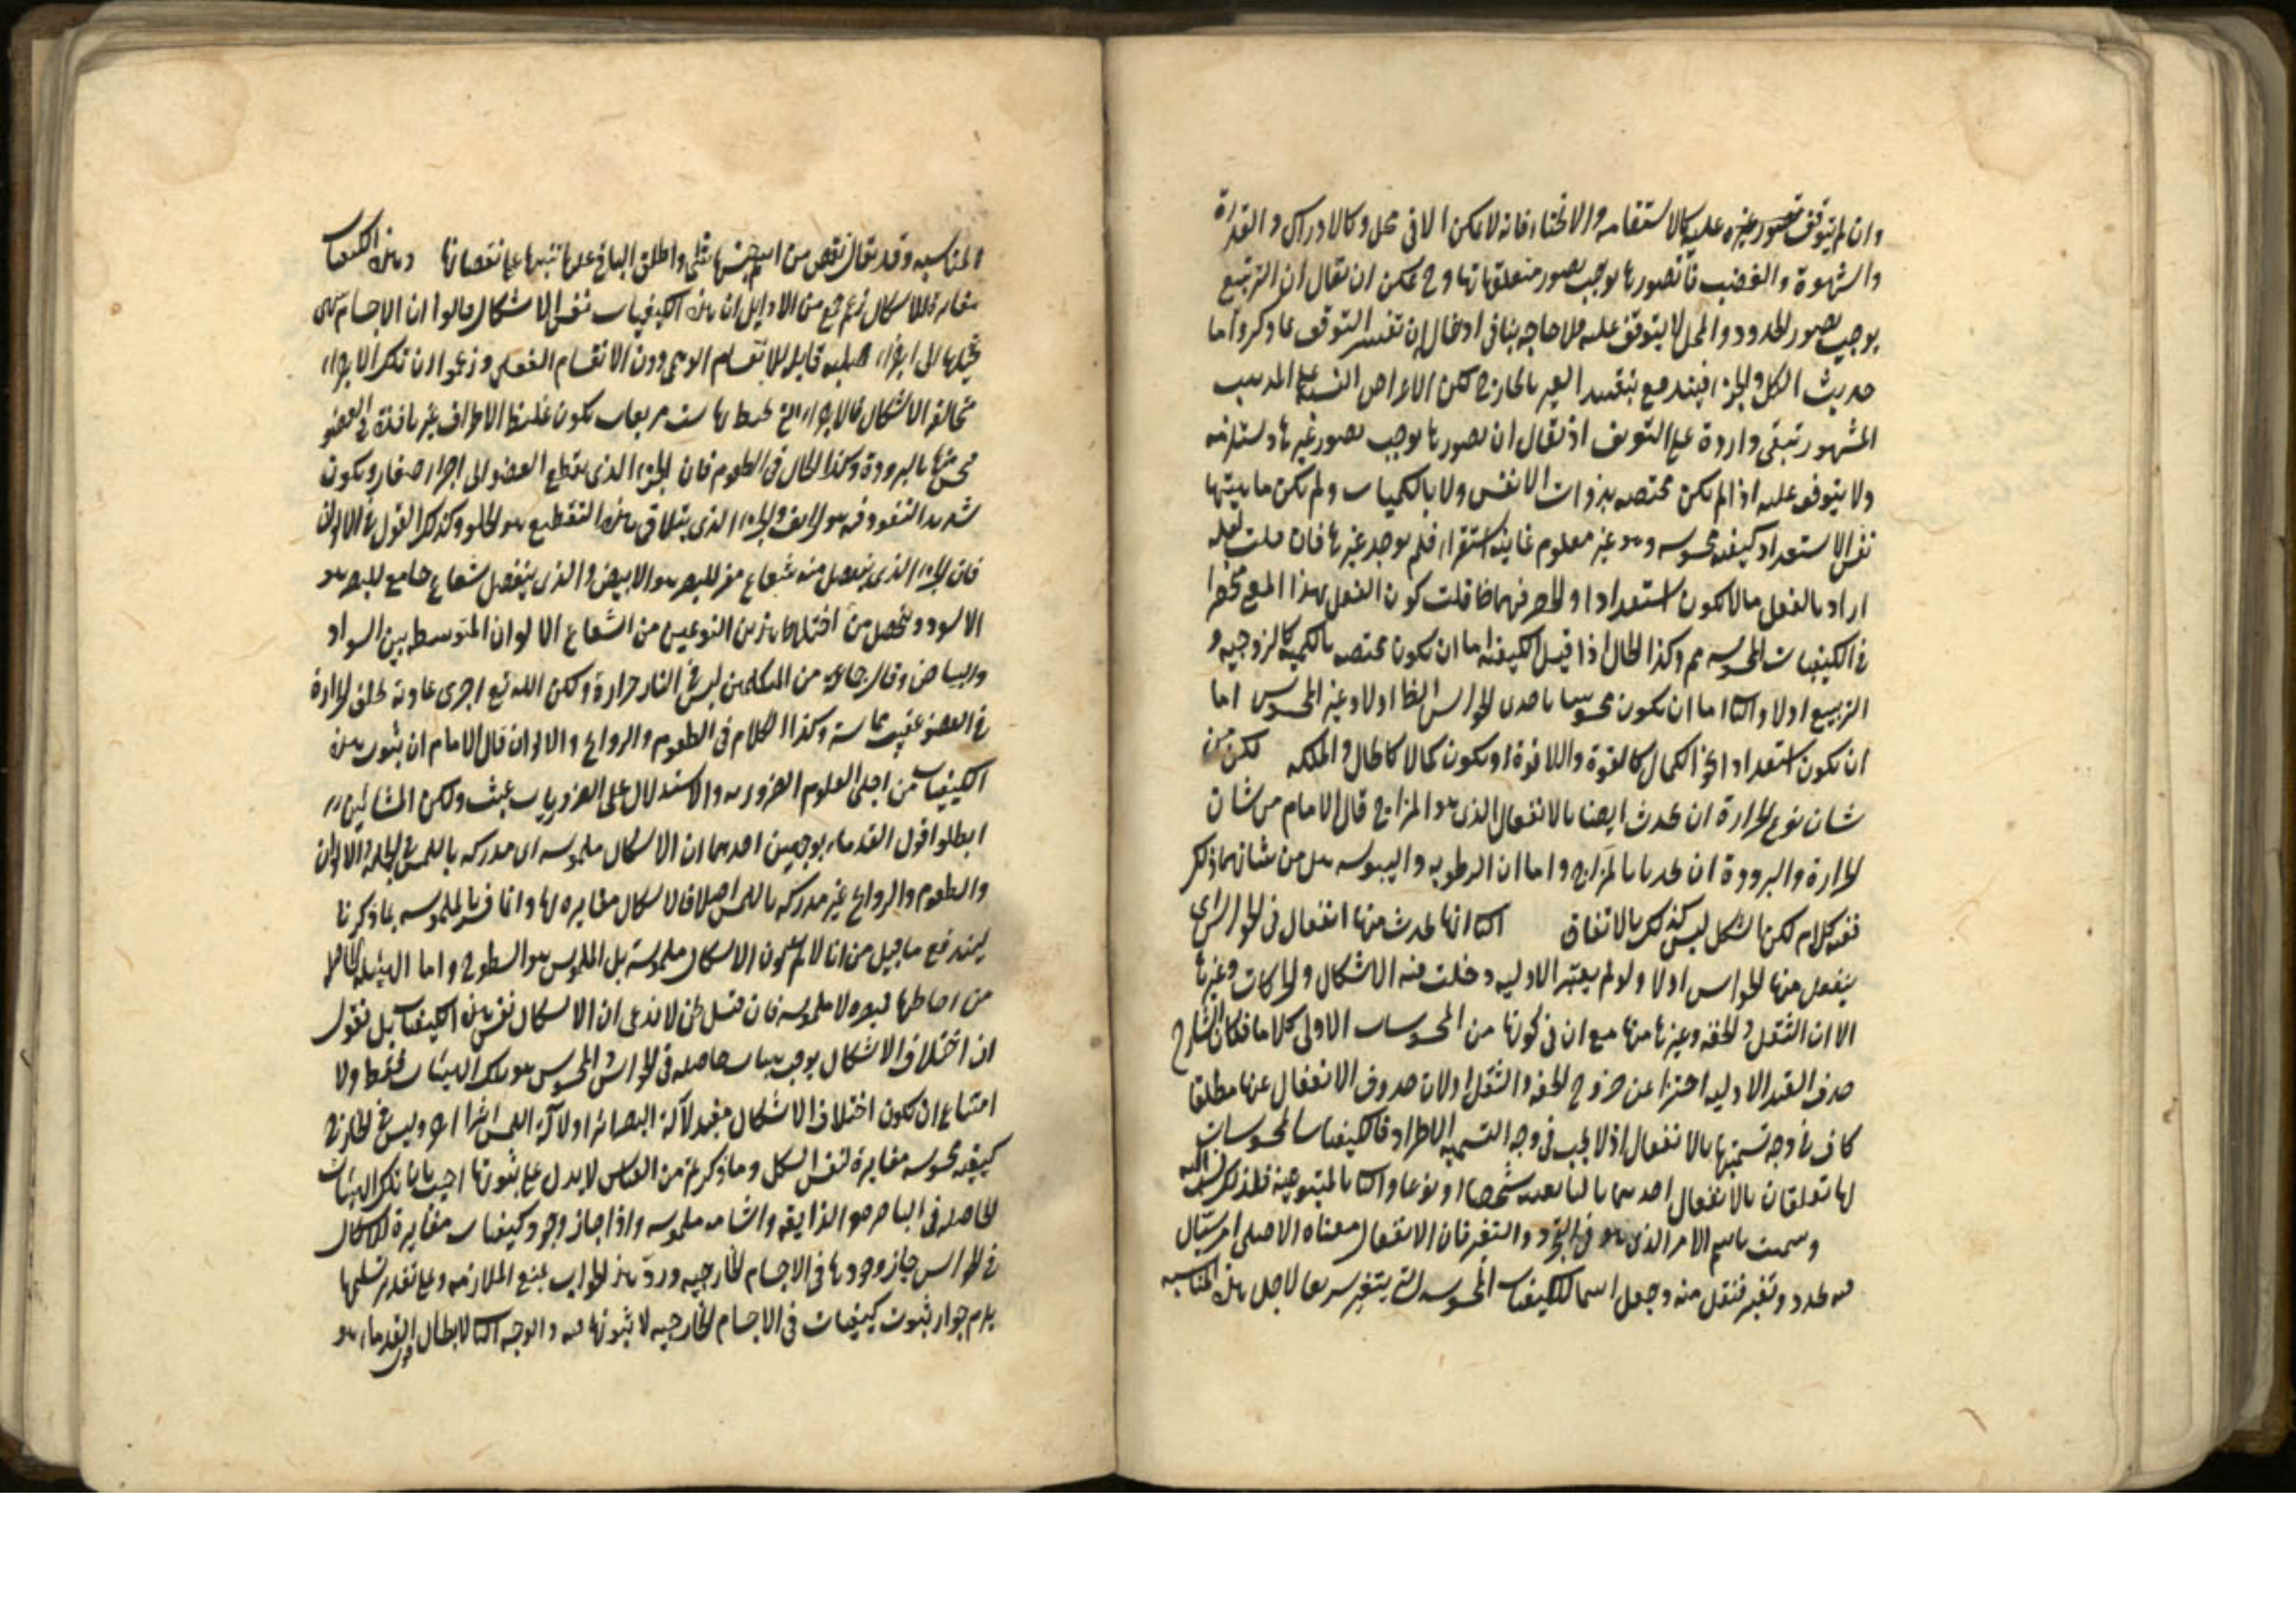 وان لم يتوقف تصور غيره عليه كالاستقامه والانحناء فانه لا يمكن الا فى محل وكالادراك والقدرة
والشهوة والغضب فان تصورها يوجب تصور متعلقاتها وح يمكن ان يقال ان التربيع
يوجب تصور الحدود والمحل لا يتوقف عليه فلا حاجه بنا فى ادخال ان تفسير التوقف بما ذكر واما
حديث الكل والجزء فيندفع بتقييد الغير بالخارج لكن الاعراض النسبيه على المذهب
المشهور تبقى واردة على التعريف اذ يقال ان تصورها يوجب تصور غيرها ويستلزمه
ولا يتوقف عليه اذا لم يكن مختصه بذوات الانفس ولا بالكميات ولم يكن ماهيتها
نفس الاستعداد كيفيه محسوسه وهو غير معلوم غايته استقراء فلم يوجد غيرها فان قلت لعله
اراد بالفعل مالا يكون استعدادا والحصر فيهما قلت كون الفعل بهذا المعنى منحصرا
فى الكيفيات المحسوسه مم وكذا الحال اذا قيل الكيفيه اما ان يكون مختصه بالكميه كالزوجيه و
التربيع اولا والثانى اما ان يكون محسوسا باحدى الحواس الظاهره اولا وغير المحسوس اما
ان يكون استعدادا نحو الكمال كالقوة واللاقوة او يكون كمالا كالحال والملكه لكن من
شان نوع الحرارة ان يحدث ايضا بالانفعال الذى هو المزاج قال الامام من شان
الحرارة والبرودة ان يحدثا بالمزاج واما ان الرطوبه واليبوسه هل من شانهما ذلك
ففيه كلام لكن الشكل ليس كذلك بالاتفاق الثانى انها يحدث منها انفعال فى الحواس اى
ينفعل منها الحواس اولا ولو لم يعتبر الاوليه دخلت فيه الاشكال والحركات وغيرها
الا ان الثقل والخفه وغيرها منها مع ان فى كونها من المحسوسات الاولى كلاما فكان الشارح
حذف القيد الاوليه احترازا عن خروج الخفه والثقل اولان حدوث الانفعال عنها مطلقا
كاف فى وجه تسميتها بالانفعال اذ لا يجب فى وجه التسميه الاطراد فالكيفيات المحسوسات
لها تعلقان بالانفعال احدهما بالتابعيه شخصا او نوعا والثانى بالمتبوعيه فلذلك نسب اليه
وسميت باسم الامر الذى هو فى التجدد والتغير فان الانفعال معناه الاصلى امر سيال
فيه تجدد وتغير فنقل منه وجعل اسما للكيفيات المحسوسه التى يتغير سريعا لاجل هذه المناسبه
المناسبه وقد يقال نقص من اسم جنسها شئ واطلق الباقى عليها تنبيها على نقصانها وهذه الكيفيات
مغايره للاشكال زعم جمع من الاوايل ان هذه الكيفيات نفس الاشكال قالوا ان الاجسام ينتهى
تحليلها الى اجزاء صلبه قابله للانقسام الوهمى دون الانقسام الفعلى وزعموا ان تلك الاجزاء
مخالفة الاشكال فالاجزاء التى تحيط بها ست مربعات يكون غليظ الاطراف غير نافذة فى العضو
محس منها بالبرودة وكذا الحال فى الطعوم فان الجزء الذى يقطع العضو الى اجزاء صغار ويكون
شديد النفوذ فيه هو الحريف والجزء الذى يتلاقى هذا التقطيع هو الحلو وكذلك القول فى الالوان
فان الجزء الذى ينفصل منه شعاع مفرق للبصر هو الابيض والذى ينفصل شعاع جامع للبصر هو
الاسود ويحصل من اختلاط هذين النوعين من الشعاع الالوان المتوسطه بين السواد
والبياض وقال جماعة من المتكلمين ليس فى النار حرارة ولكن الله تع اجرى عادته بخلق الحرارة
فى العضو عقيب مماسته وكذا الكلام فى الطعوم والروايح والالوان قال الامام ان ثبوت هذه
الكيفيات من اجلى العلوم الضروريه والاستدلال على الضروريات عبث ولكن المشائين
ابطلوا قول القدماء بوجهين احدهما ان الاشكال ملموسه اى مدركه باللمس فى الجملة والالوان
والطعوم والروايح غير مدركه باللمس اصلا فالاشكال مغايره لها وانما فسرنا الملموسه بما ذكرنا
ليندفع ما قيل من انا لا نم كون الاشكال ملموسة بل الملموس هو السطوح واما الهيئه الحاصله
من احاطتها فمبصره لا ملموسه فان قيل نحن لا ندعى ان الاشكال نفس هذه الكيفيات بل نقول
ان اختلاف الاشكال يوجب هيئات حاصله فى الحواس والمحسوس هو تلك الهيئات فقط ولا
امتناع ان يكون اختلاف الاشكال مفيد لآلة البصر اثرا ولآلة اللمس اثرا اخر وليس فى الخارج
كيفيه محسوسه مغايرة لنفس الشكل وما ذكرتم من القياس لا يدل على ثبوتها اجيب بان تلك الهيئات
الحاصله فى الباصره والذايقه والشامه ملموسه واذا جاز وجود كيفيات مغايرة للاشكال
فى الحواس جاز وجودها فى الاجسام الخارجيه ورد هذا الجواب بمنع الملازمه وعلى تقدير تسليمها
يلزم جواز ثبوت كيفيات فى الاجسام الخارجيه لا ثبوتها فيه والوجه الثانى لابطال قول القدماء هو